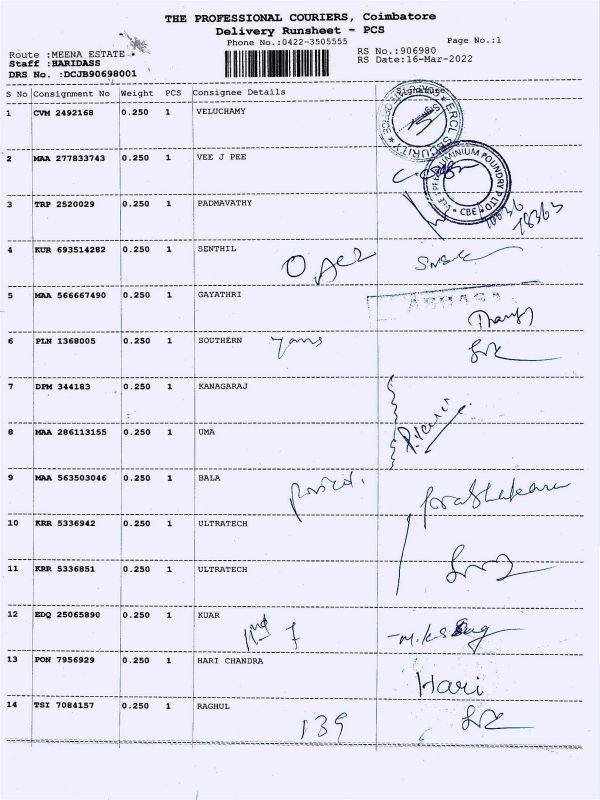 THE PROFESSIONAL COURIERS, Coimbatore
Delivery Runsheet - PCS
Phone No.:0422-3505555 Page No.:1
Route :MEENA ESTATE RS No.:906980
Staff :HARIDASS RS Date:16-Mar-2022
DRS No. :DCJB90698001
S No Consignment No Weight PCS Consignee Details Signature
1 CVM 2492168 0.250 1 VELUCHAMY
2 MAA 277833743 0.250 1 VEE J PEE
3 TRP 2520029 0.250 1 PADMAVATHY
78363
4 KUR 693514282 0.250 1 SENTHIL
5 MAA 566667490 0.250 1 GAYATHRI
6 PLN 1368005 0.250 1 SOUTHERN
7 DPM 344183 0.250 1 KANAGARAJ
8 MAA 286113155 0.250 1 UMA
9 MAA 563503046 0.250 1 BALA
10 KRR 5336942 0.250 1 ULTRATECH
11 KRR 5336851 0.250 1 ULTRATECH
12 EDQ 25065890 0.250 1 KUAR
13 PON 7956929 0.250 1 HARI CHANDRA
Hari
14 TSI 7084157 0.250 1 RAGHUL
139